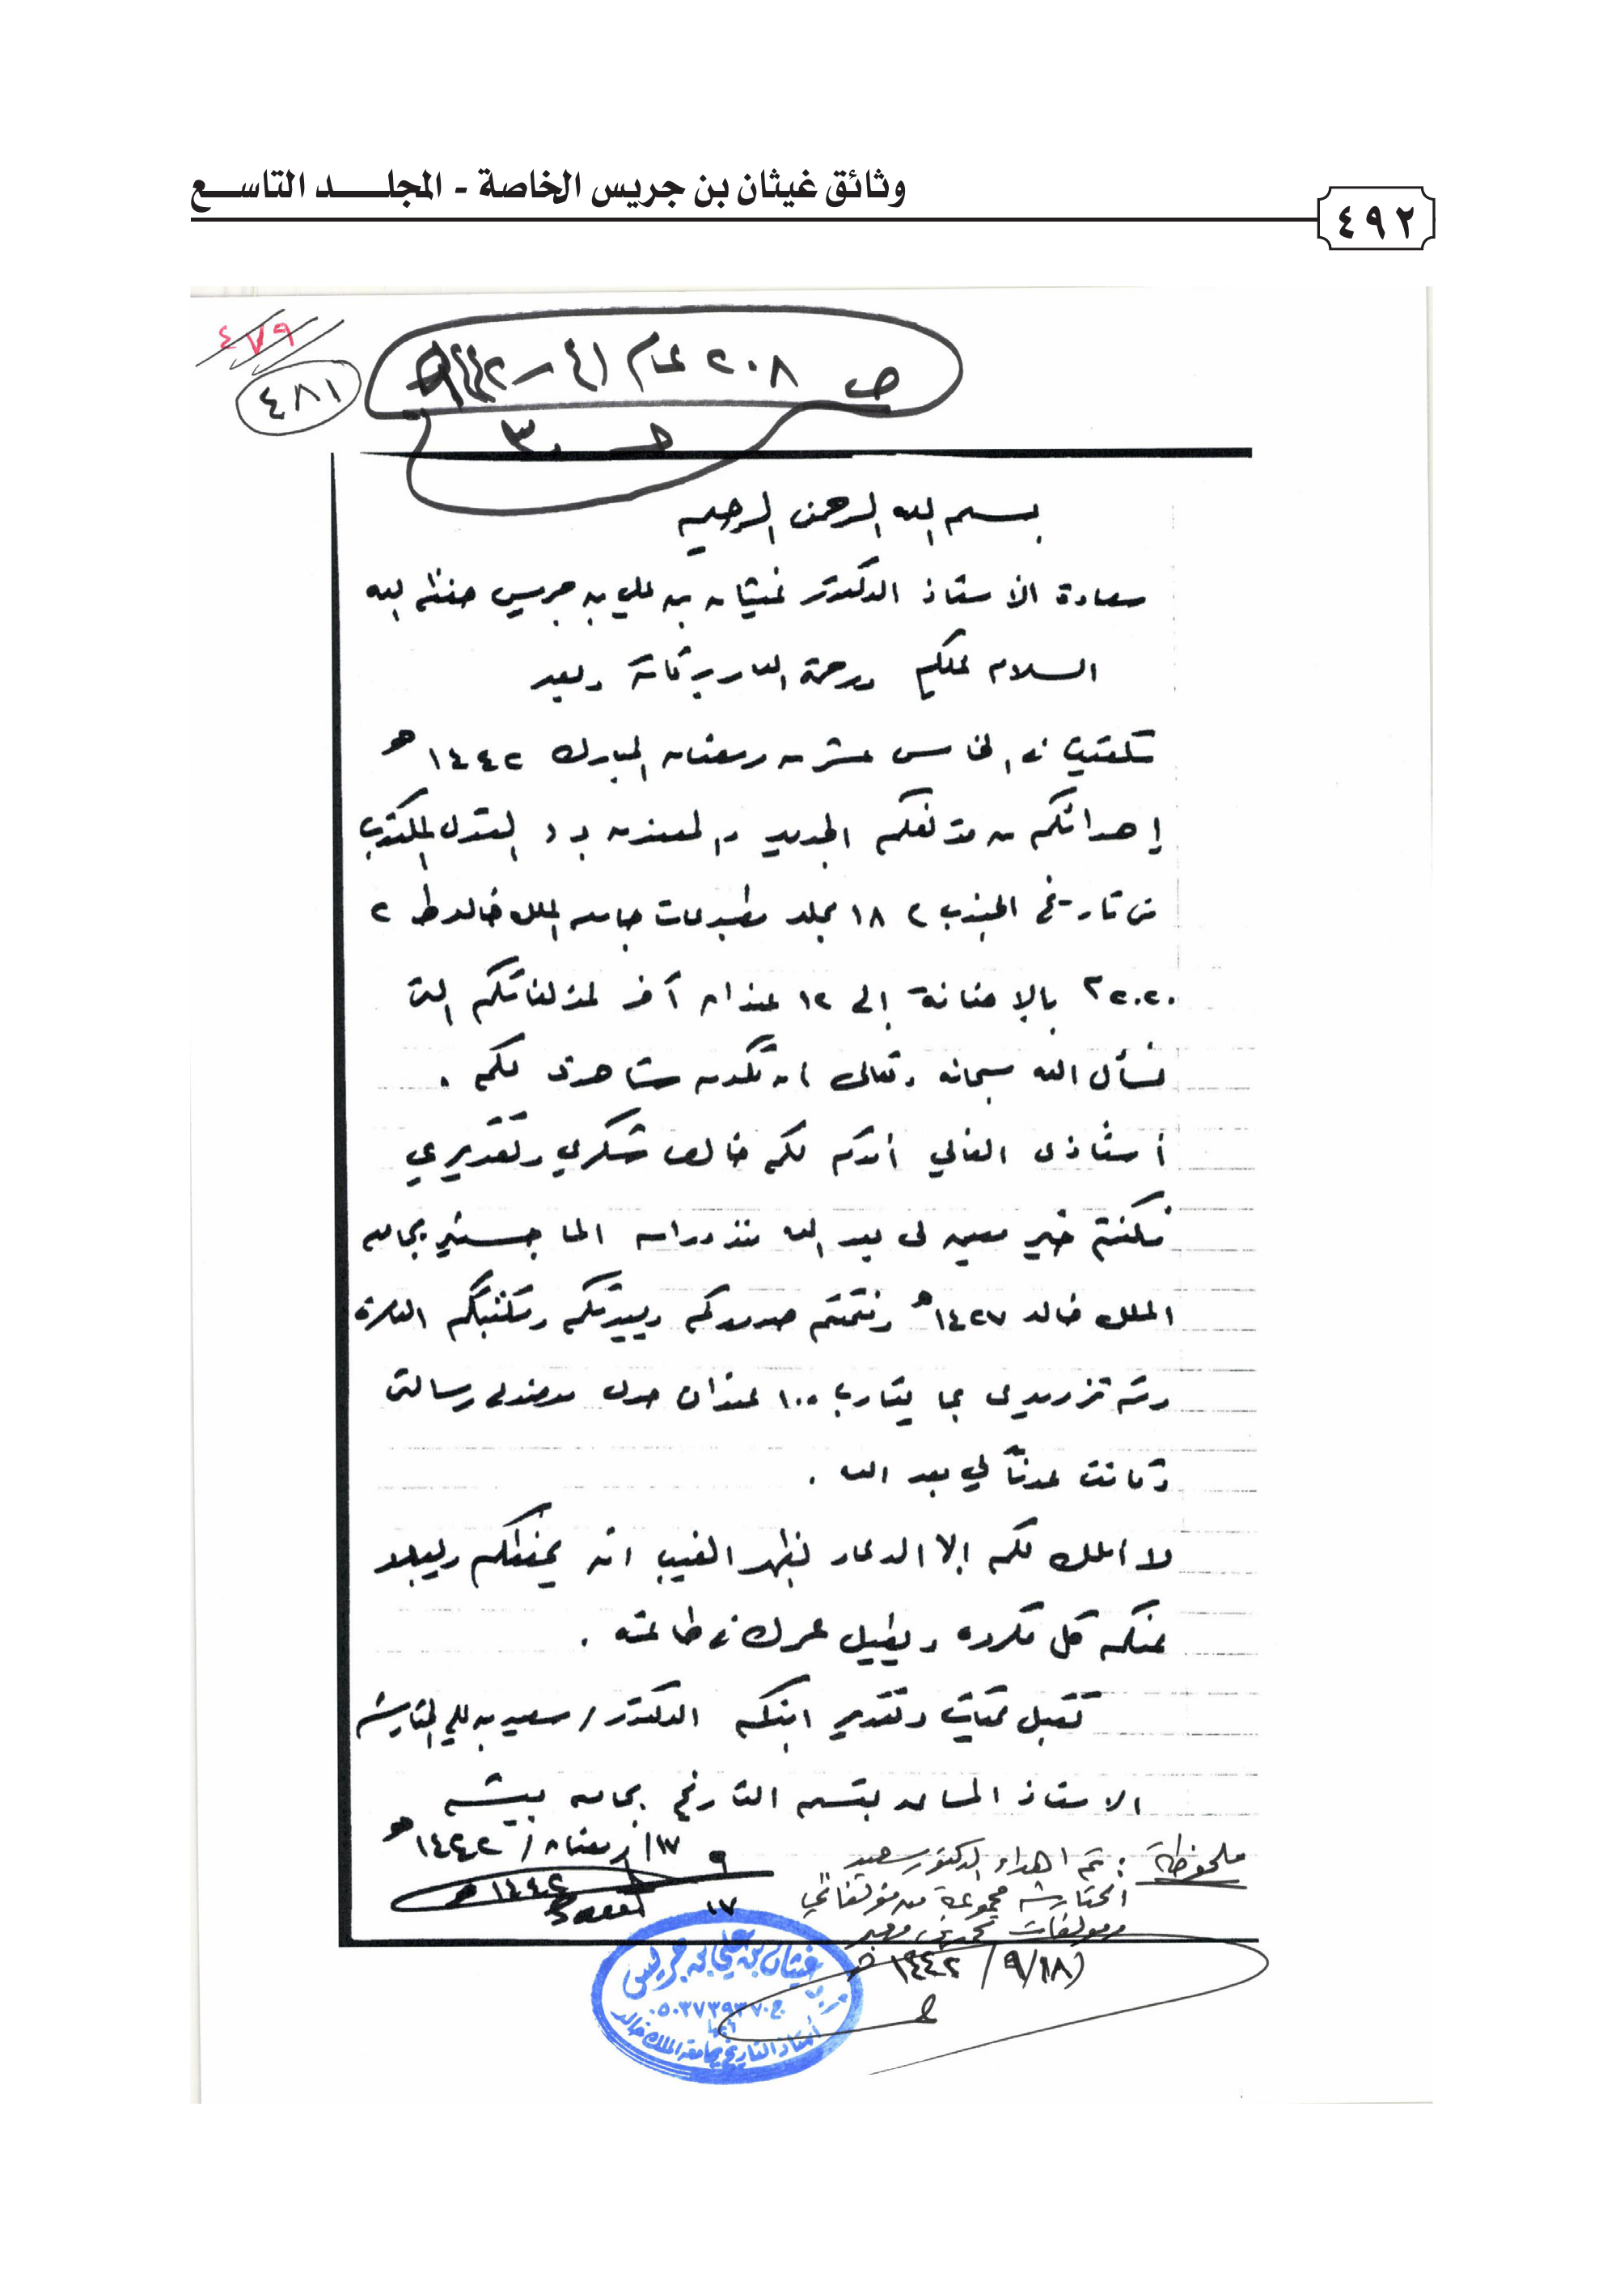 وثائق غيثان بن جريس الخاصة - المجلد التاسع
٤٩٢
٤٧٩
٤٨١
ص ٢٠٨ عام ٤١ – ١٤٤٢هـ
٣٠
بسم الله الرحمن الرحيم
سعادة الأستاذ الدكتور غيثان بن علي بن جريس حفظه الله
السلام عليكم ورحمة الله وبركاته وبعد
تلقيت في الخامس عشر من رمضان المبارك ١٤٤٢هـ
إهدائكم من مؤلفكم الجديد والمعنون بـ ( القول المكتوب
في تاريخ الجنوب ) ١٨ مجلد مطبوعات جامعه الملك خالد ط ٢
٢٠٢٠م بالإضافة إلى ١٢ عنوان آخر لمؤلفاتكم التي
نسأل الله سبحانه وتعالى ان تكون شاهدة لكم .
أستاذي الغالي أقدم لكم خالص شكري وتقديري
فكنتم خير معين لي بعد الله منذ دراسه الماجستير بجامعه
الملك خالد ١٤٢٧هـ وفتحتم صدوركم وبيوتكم ومكتبتكم العامرة
وتم تزويدي بما يقارب ١٠٠ عنوان حول موضوع رسالتي
وكانت عوناً لي بعد الله .
لا أملك لكم إلا الدعاء بظهر الغيب انه يحفظكم ويبعد
عنكم كل مكروه ويطيل عمرك في طاعته .
تقبل تحيات وتقدير ابنكم الدكتور / سعيد بن علي الحتارشه
الاستاذ المساعد بقسم التاريخ بجامعه بيشه
١٧/ رمضان / ١٤٤٢هـ
١٧ ٩ ١٤٤٢هـ
ملحوظة : تم اهداء الدكتور سعيد
الحتارشه مجموعة من مؤلفاتي
ومؤلفات محمد بن معبر
(١٨/ ٩/ ١٤٤٢هـ
غيثان بن علي بن جريس
ج ٠٥٠٣٧٣٩٣٧٠
أستاذ التاريخ بجامعة الملك خالد